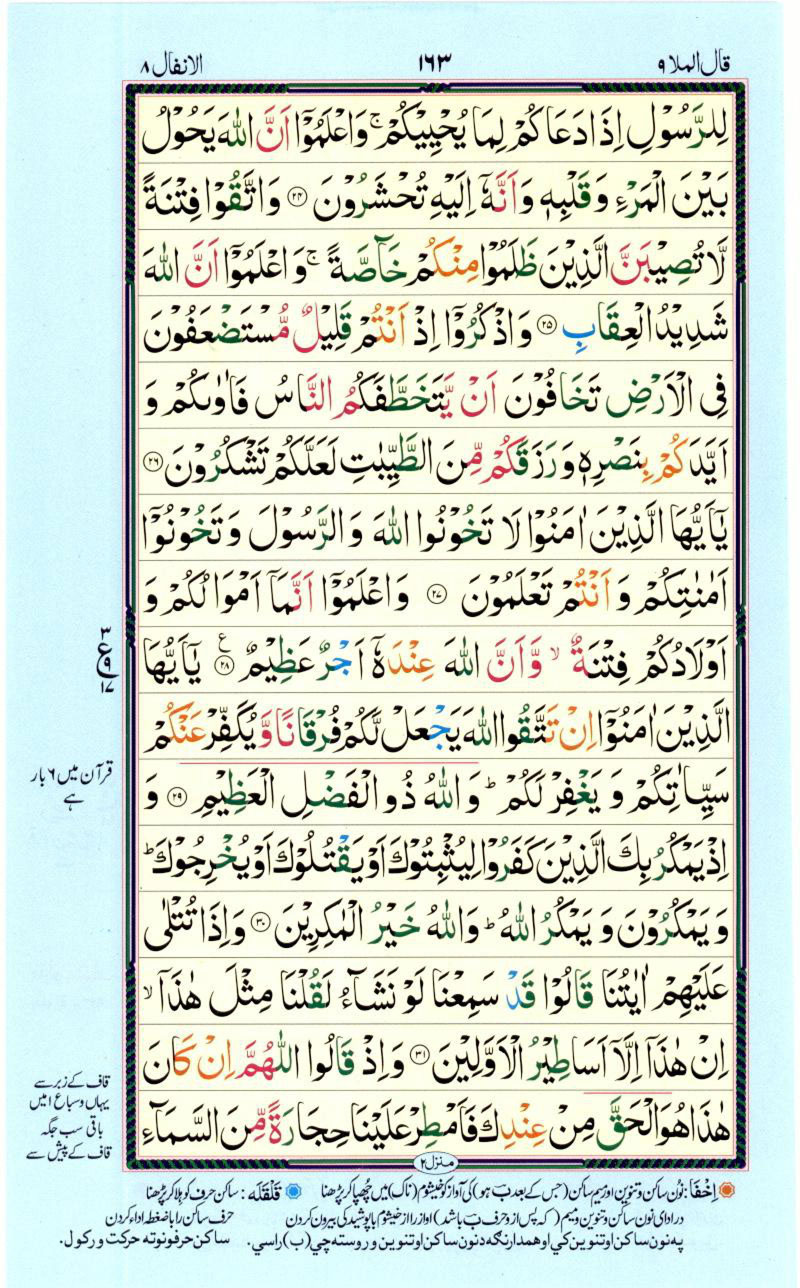 قال الملا ٩ ١٦٣ الانفال ٨
لِلرَّسُوۡلِ اِذَا دَعَاكُمۡ لِمَا يُحۡيِيۡكُمۡ‌ۚ وَاعۡلَمُوۡۤا اَنَّ اللّٰهَ يَحُوۡلُ
بَيۡنَ الۡمَرۡءِ وَقَلۡبِهٖ وَاَنَّهٗۤ اِلَيۡهِ تُحۡشَرُوۡنَ ﴿۲۴﴾ وَاتَّقُوۡا فِتۡنَةً
لَّا تُصِيۡبَنَّ الَّذِيۡنَ ظَلَمُوۡا مِنۡكُمۡ خَآصَّةً‌ ۚ وَاعۡلَمُوۡۤا اَنَّ اللّٰهَ
شَدِيۡدُ الۡعِقَابِ ﴿۲۵﴾ وَاذۡكُرُوۡۤا اِذۡ اَنۡتُمۡ قَلِيۡلٌ مُّسۡتَضۡعَفُوۡنَ
فِى الۡاَرۡضِ تَخَافُوۡنَ اَنۡ يَّتَخَطَّفَكُمُ النَّاسُ فَاٰوٰٮكُمۡ وَ
اَيَّدَكُمۡ بِنَصۡرِهٖ وَرَزَقَكُمۡ مِّنَ الطَّيِّبٰتِ لَعَلَّكُمۡ تَشۡكُرُوۡنَ ﴿۲۶﴾
يٰۤاَيُّهَا الَّذِيۡنَ اٰمَنُوۡا لَا تَخُوۡنُوا اللّٰهَ وَالرَّسُوۡلَ وَتَخُوۡنُوۡۤا
اَمٰنٰتِكُمۡ وَاَنۡتُمۡ تَعۡلَمُوۡنَ ﴿۲۷﴾ وَاعۡلَمُوۡۤا اَنَّمَاۤ اَمۡوَالُكُمۡ وَ
اَوۡلَادُكُمۡ فِتۡنَةٌ ۙ وَّاَنَّ اللّٰهَ عِنۡدَهٗۤ اَجۡرٌ عَظِيۡمٌ ﴿۲۸﴾ع يٰۤاَيُّهَا
٣
ع
٩
١٧
الَّذِيۡنَ اٰمَنُوۡۤا اِنۡ تَتَّقُوا اللّٰهَ يَجۡعَلْ لَّكُمۡ فُرۡقَانًا وَّيُكَفِّرۡ عَنۡكُمۡ
سَيِّاٰتِكُمۡ وَيَغۡفِرۡ لَكُمۡ‌ؕ وَاللّٰهُ ذُو الۡفَضۡلِ الۡعَظِيۡمِ ﴿۲۹﴾ وَ
قرآن میں ۶ بار
ہے
اِذۡ يَمۡكُرُ بِكَ الَّذِيۡنَ كَفَرُوۡا لِيُثۡبِتُوۡكَ اَوۡ يَقۡتُلُوۡكَ اَوۡ يُخۡرِجُوۡكَ‌ؕ
وَيَمۡكُرُوۡنَ وَيَمۡكُرُ اللّٰهُ‌ؕ وَاللّٰهُ خَيۡرُ الۡمٰكِرِيۡنَ ﴿۳۰﴾ وَاِذَا تُتۡلٰى
عَلَيۡهِمۡ اٰيٰتُنَا قَالُوۡا قَدۡ سَمِعۡنَا لَوۡ نَشَآءُ لَقُلۡنَا مِثۡلَ هٰذَاۤ‌ ۙ
اِنۡ هٰذَاۤ اِلَّاۤ اَسَاطِيۡرُ الۡاَوَّلِيۡنَ ﴿۳۱﴾ وَاِذۡ قَالُوا اللّٰهُمَّ اِنۡ كَانَ
هٰذَا هُوَ الۡحَقَّ مِنۡ عِنۡدِكَ فَاَمۡطِرۡ عَلَيۡنَا حِجَارَةً مِّنَ السَّمَآءِ
قاف کے زبر سے
یہاں و سباع امیں
باقی سب جگہ
قاف کے پیش سے
منزل ٢
اِخفَا: نون ساکن و تنوین اور میم ساکن (جس کے بعد ب ہو) کی آواز کو خیشوم (ناک) میں چھپا کر پڑھنا قَلقَلَه: ساکن حرف کو ہلا کر پڑھنا
در ادای نون ساکن و تنوین و میم (که پس از و حرف ب باشد) اواز را از خیشوم با پوشیدگی بیرون کردن حرف ساکن را با ضغطه ادا و کردن
په نون ساکن او تنوین کي او همدارنګه د نون ساکن او تنوین وروسته چي (ب) راسي. ساکن حرفونو ته حرکت ورکول.